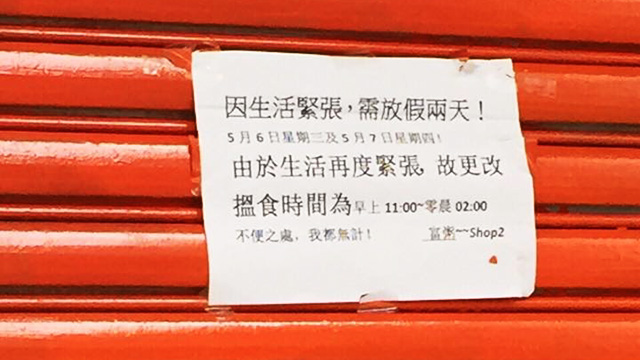 因生活緊張，需放假兩天！
5月6日星期三及5月7日星期四！
由於生活再度緊張，故更改
搵食時間為早上 11:00~零晨 02:00
不便之處，我都無計！ 富粥~~Shop2